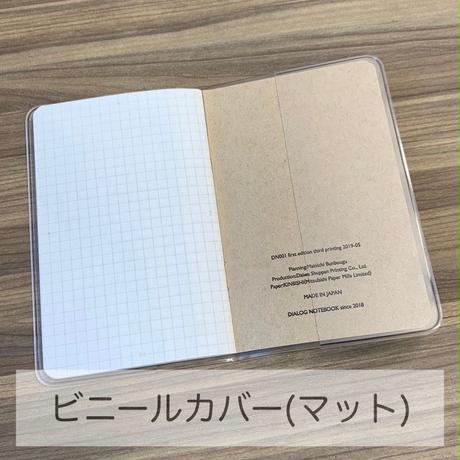 DN001 first edition third printing 2019-05
Planning:Mainichi Bunbougu
Production:Daiwa Shuppan Printing Co., Ltd.
Paper:KINBISHI(Mitsubishi Paper Mills Limited)
MADE IN JAPAN
DIALOG NOTEBOOK since 2018
ビニールカバー(マット)